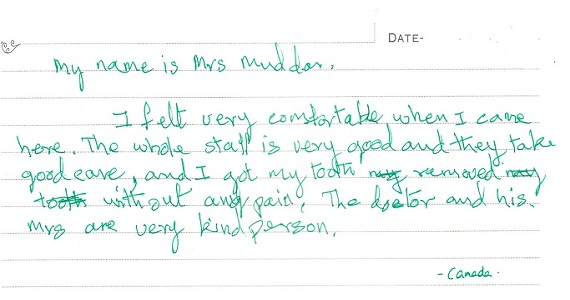 DATE-
My name is Mrs Muddar.
I felt very comfortable when I came
here. The whole staff is very good and they take
good care, and I got my tooth removed
without any pain. The doctor and his
Mrs are very kind person.
- Canada.